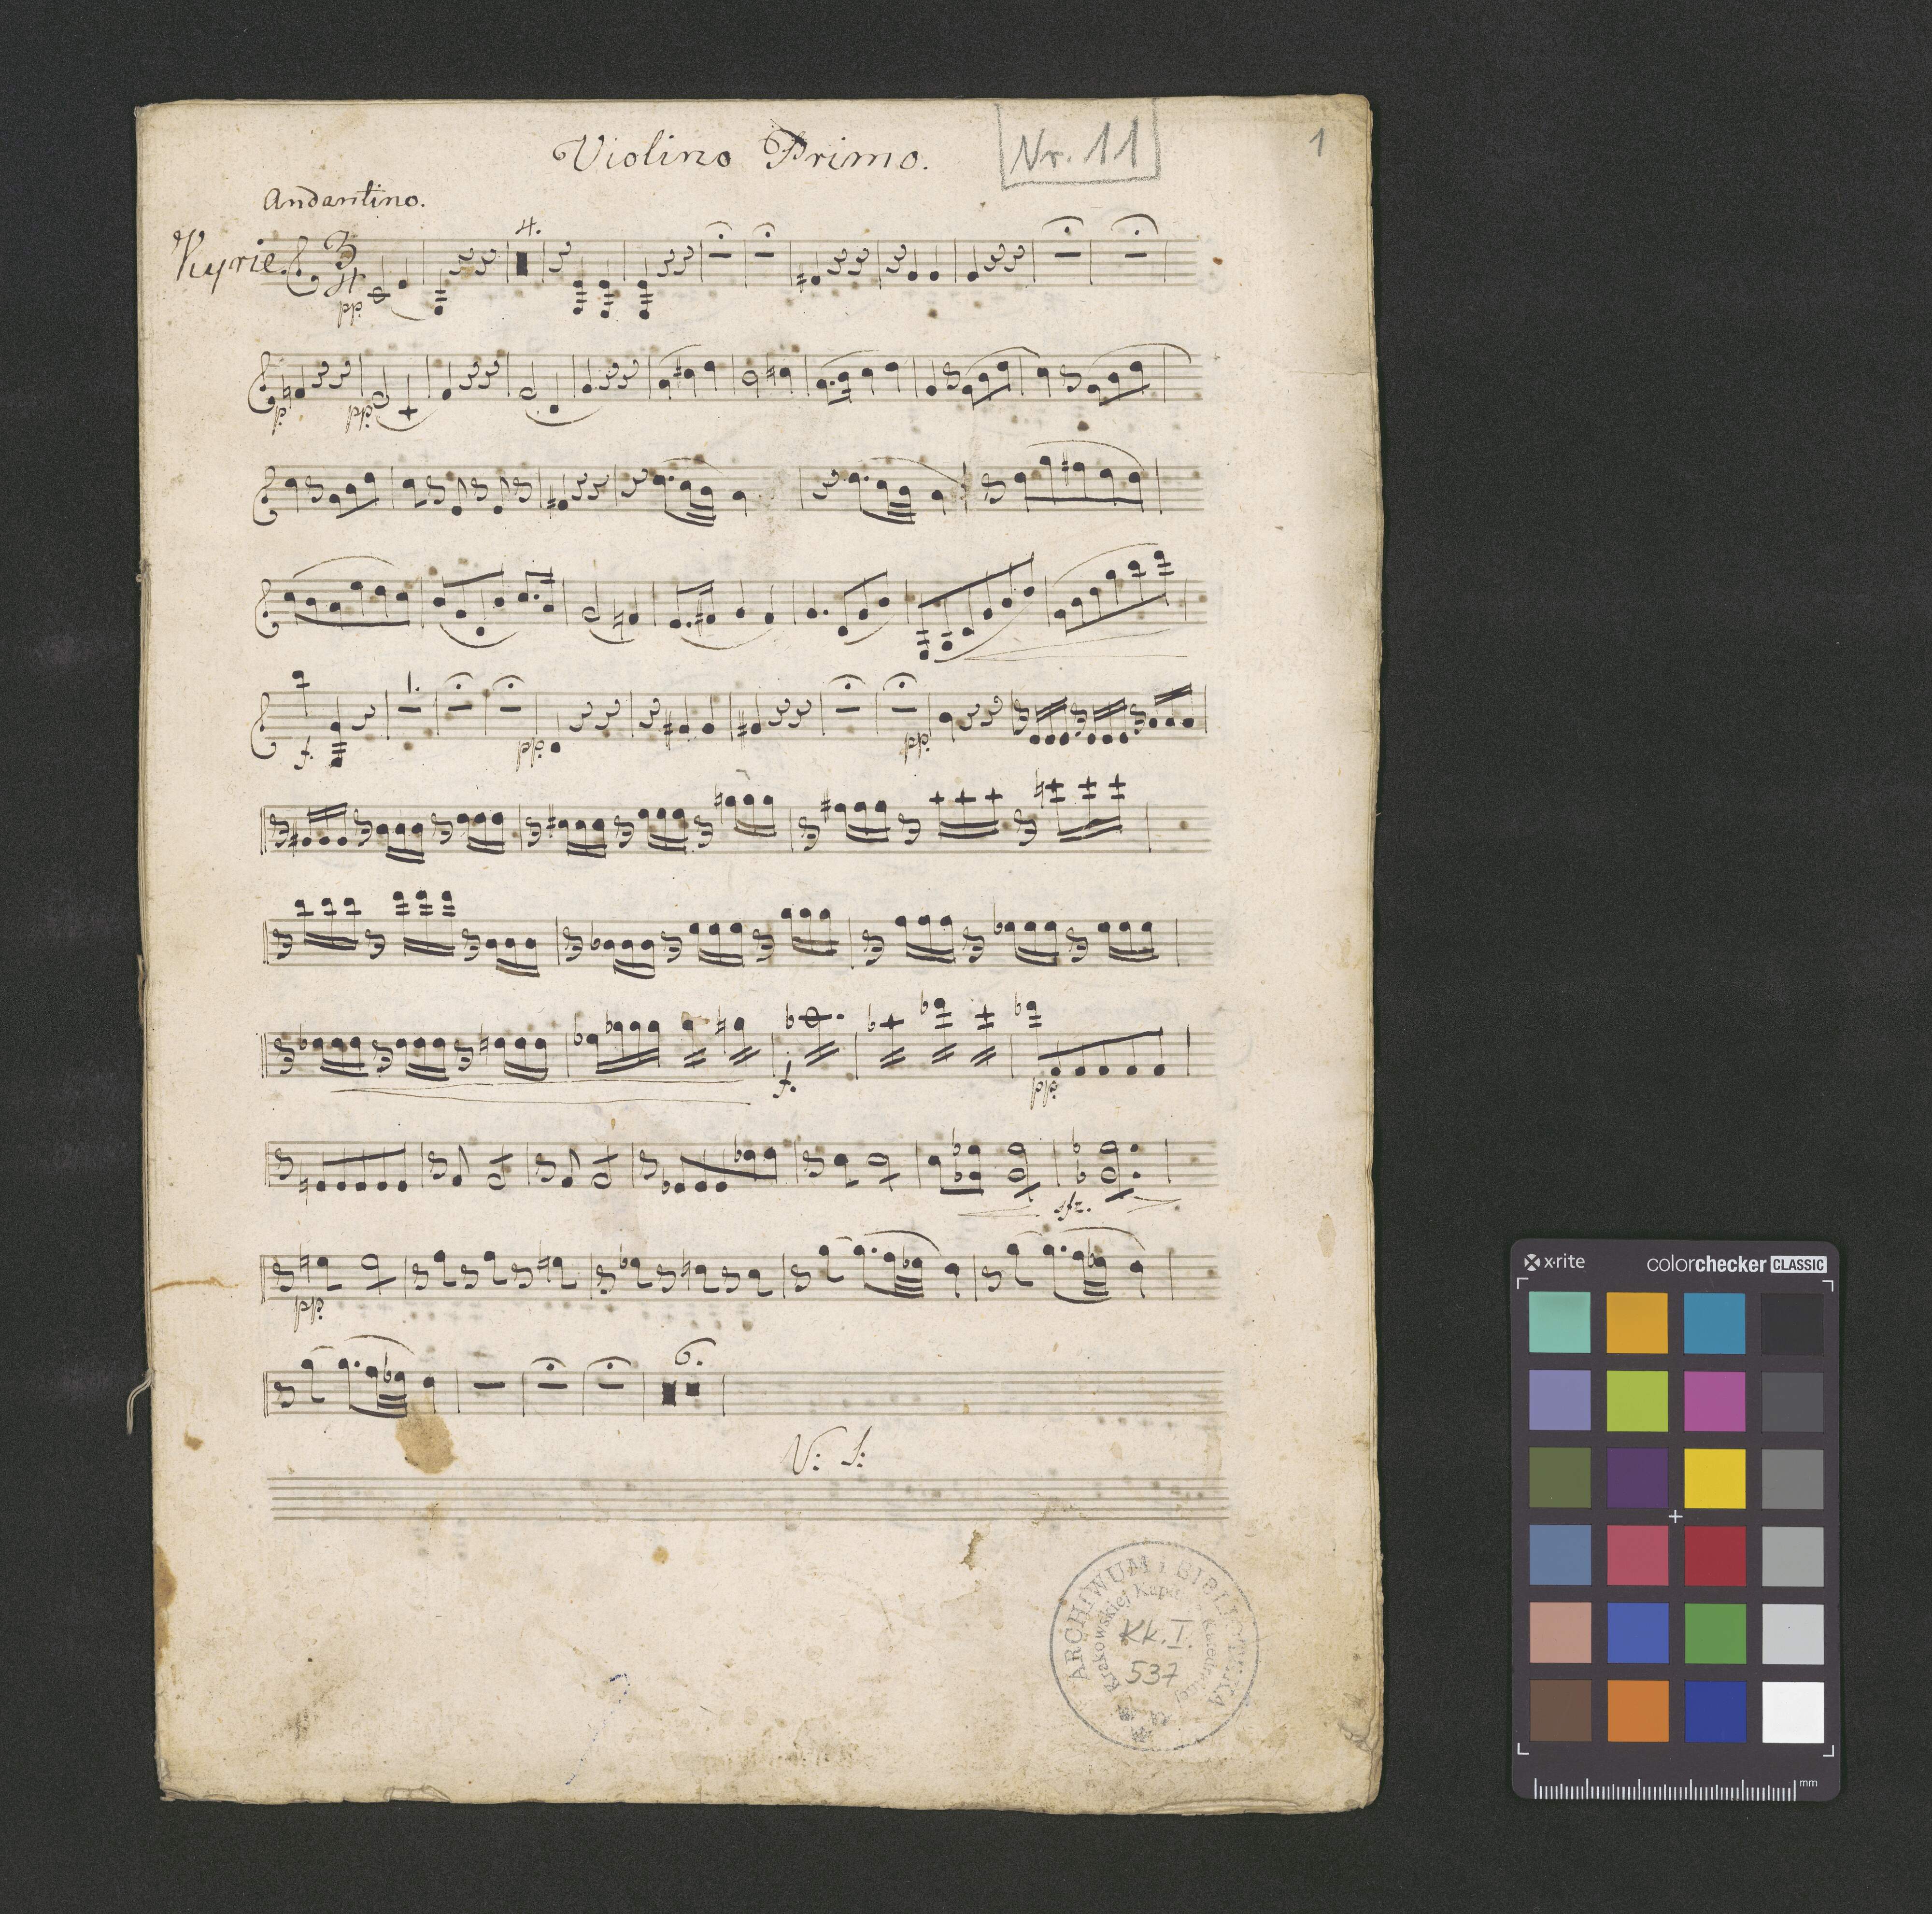 Violino Primo.
Nr. 11
1
Andantino.
Kyrie.
3
4
pp.
4.
p.
pp.
f.
1.
pp.
pp.
f.
pp.
sfz.
pp.
6.
V: S:
ARCHIWUM i BIBLIOTEKA
Krakowskiej Kapituły Katedralnej
Kk. I.
537
x-rite
colorchecker CLASSIC
mm